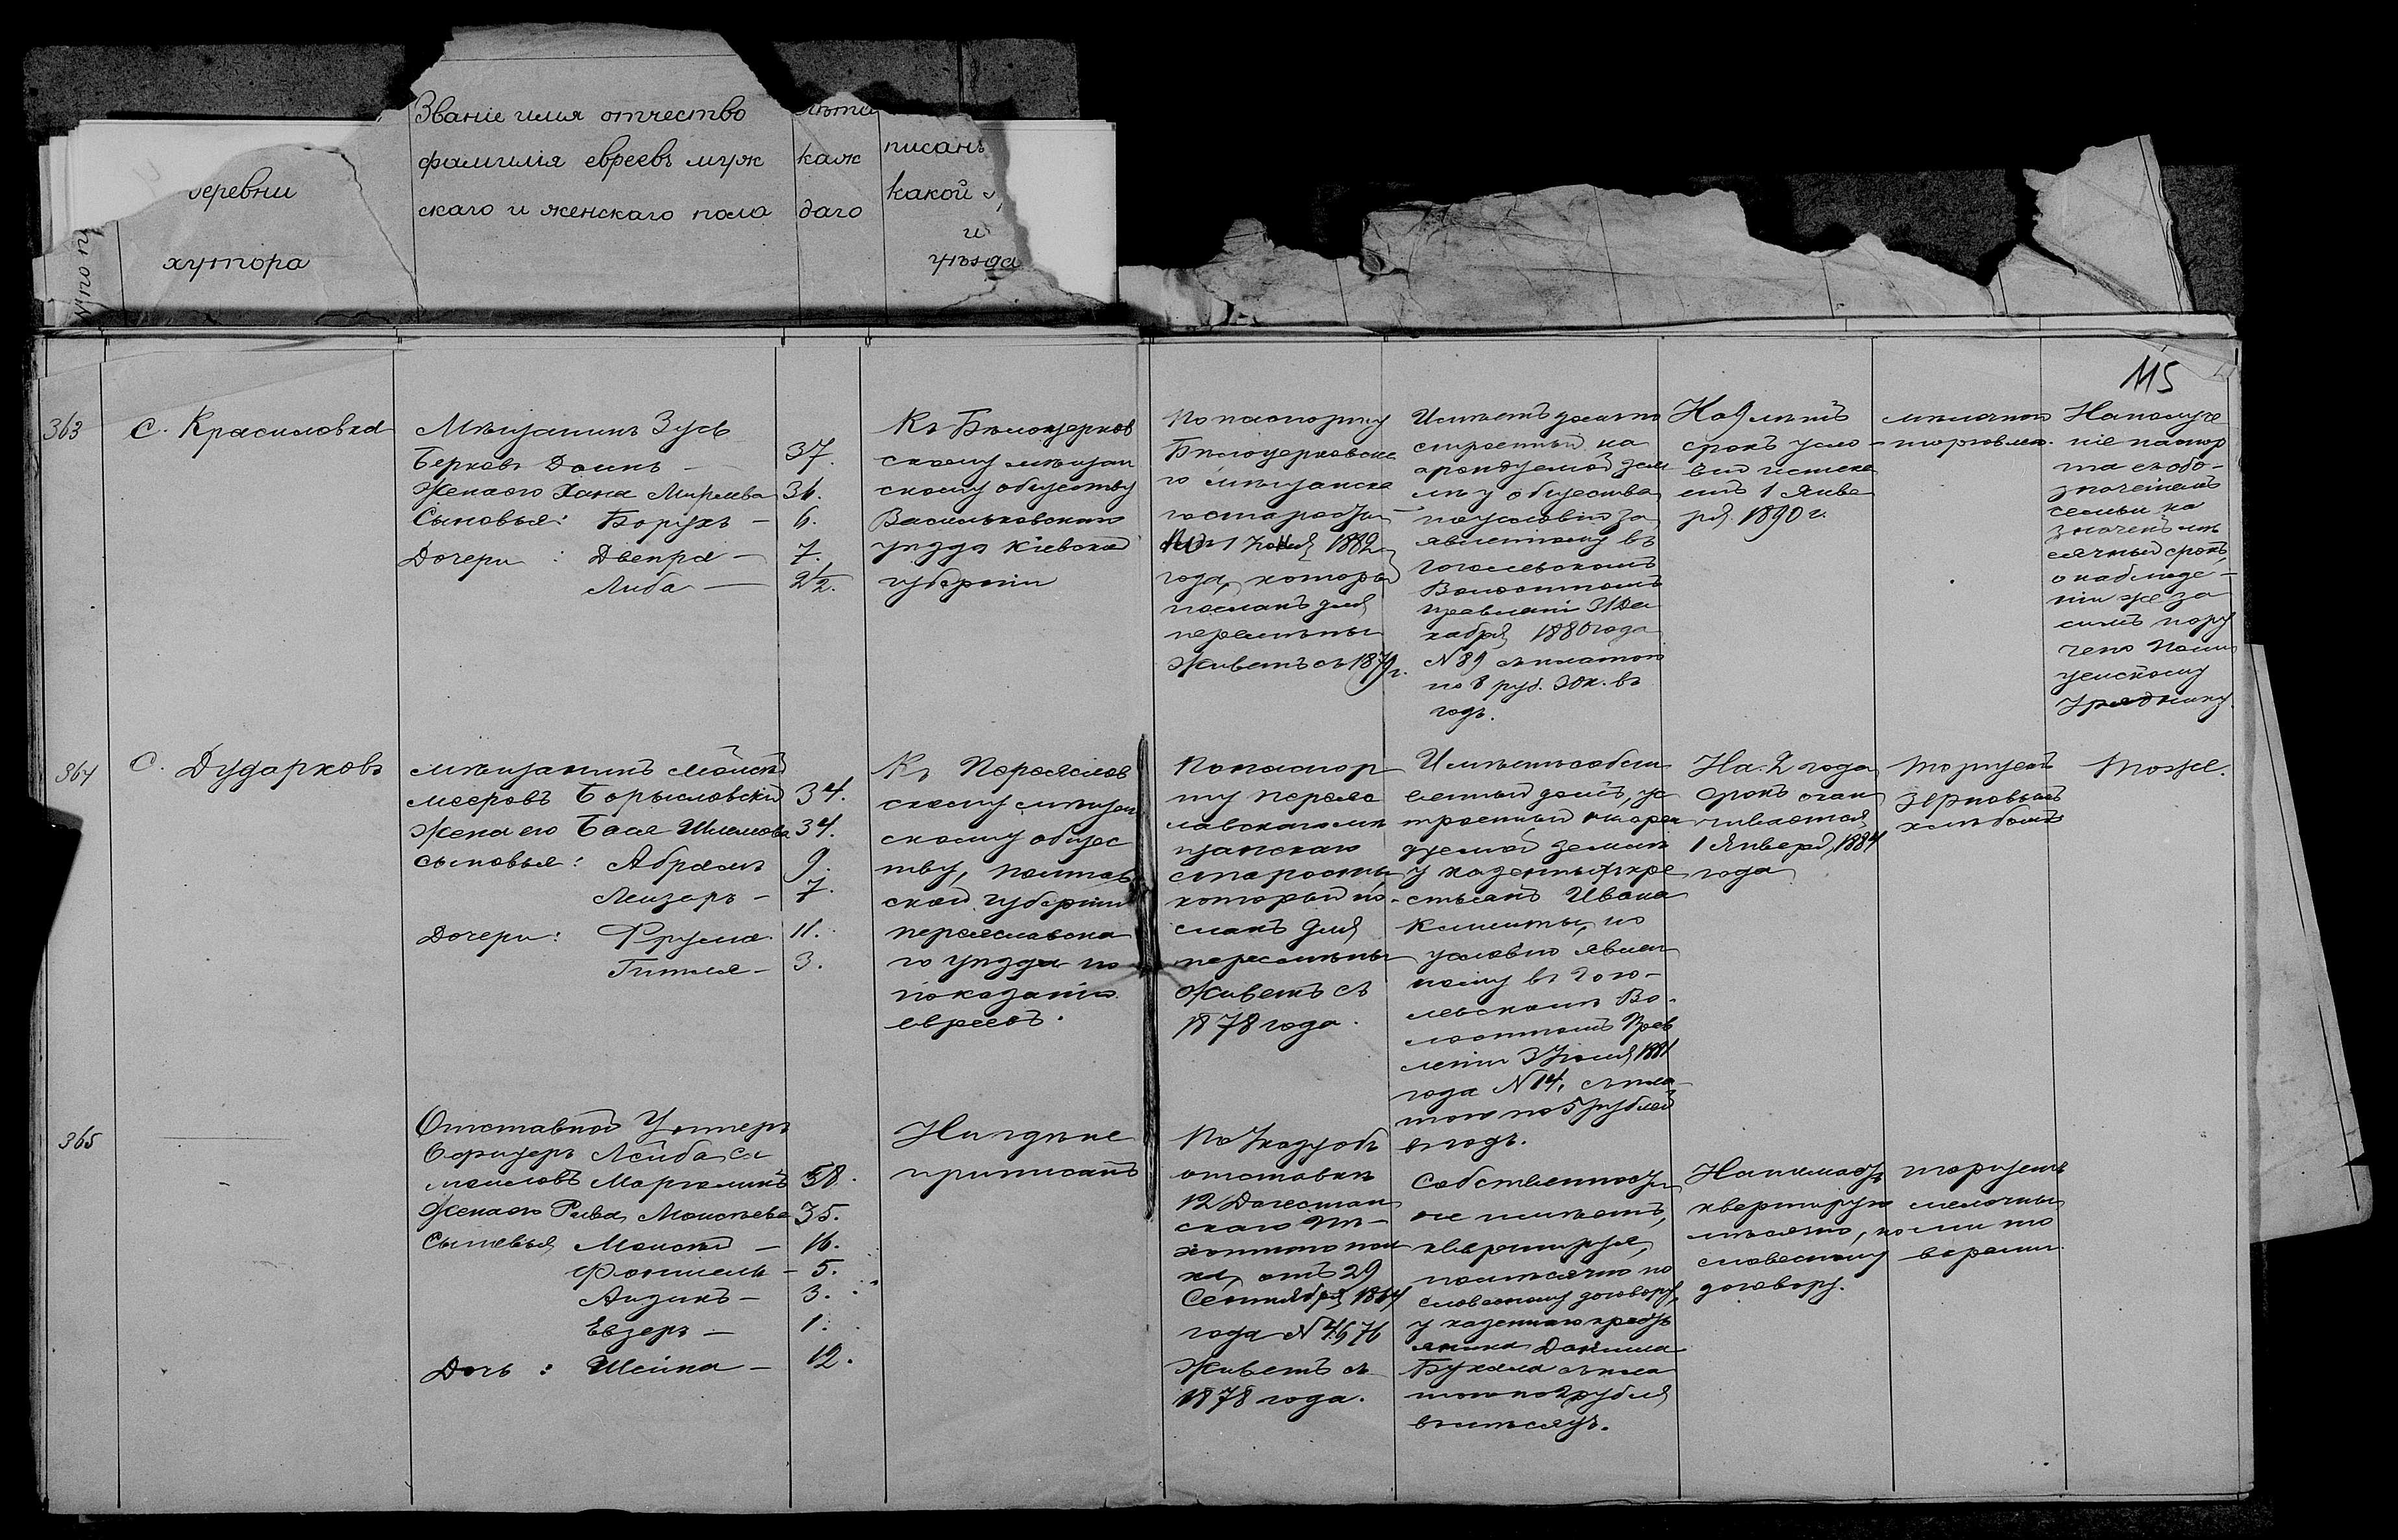 деревни
хутора
Званіе имя отчество
фамилія евреевъ муж
скаго и женскаго пола
лѣта
каж
даго
писанъ
какой
и
уѣзда
115
363
С. Красиловка
Мѣщанинъ Зусь
Берковъ
Жена его Хана
Сыновья: Борухъ —
Дочери : Двейра —
Либа —
37.
36.
6.
7.
2½.
Къ Бѣлоцерков
скому мѣщан
скому обществу
Васильковскаго
уѣзда Кіевской
губерніи
По паспорту
Бѣлоцерковска
го мѣщанска
го старосты
1882
года, который
посланъ для
перемѣны
Живетъ съ 1879 г.
Имѣетъ домъ по
строенный на
арендуемой зем
лѣ у общества
по условію за
явленному въ
Гоголевскомъ
Волостномъ
правленіи 31 Де
кабря 1880 года
N 89 съ платою
по 8 руб. 30 к. въ
годъ.
На 9 лѣтъ
срокъ усло
вія истека
етъ 1 Янва
ря 1890 г.
мелочною
торговлею.
На получе
ніе паспор
та съ обо-
значеніемъ
семьи на
значенъ мѣ
сячный срокъ,
о наблюде-
ніи же за
симъ пору
чено
Уряднику.
364
С. Дударковъ
мѣщанинъ Мойсей
Мееровъ Борысловскій
Жена его Бася Шлемова
сыновья: Абрамъ
Лейзеръ —
Дочери: Фрума
Гитля —
34.
34.
9.
7.
11.
3.
Къ Переяслов
скому мѣщан
скому общес
тву, Полтав
ской губерніи
переяславска
го уѣзда по
показанію
евреевъ.
По паспор
ту Перея
славскаго мѣ
щанскаго
старосты,
который по-
сланъ для
перемѣны
Живетъ съ
1878 года.
Имѣетъ собст
венный домъ, ус
троенный на арен
дуемой землѣ
у казенныхъ кре
стьянъ Ивана
по
условію явлен
ному въ Гого-
левскомъ Во-
лостномъ Прав
леніи 3 Іюля 1881
года N 14, съ пла
тою по 5 рублей
въ годъ.
На 2 года
срокъ окан
чивается
1 Января 1884
года
Торгуетъ
зерновымъ
хлѣбомъ
Тоже.
365
Отставной Унтеръ
Офицеръ Лейба Са
мойловъ Марголинъ
Жена его Рива Моисѣева
Сыновья Моисей —
Фоншель —
Айзикъ —
Евзеръ —
Дочь : Шейна —
58.
35.
16.
5.
3.
1.
12.
Нигдѣ не
приписанъ
По Указу объ
отставкѣ
12 Дагестан
скаго Пѣ-
хотнаго пол
ка, отъ 29
Сентября 1864
года N 4676
Живетъ съ
1878 года.
Собственности
не имѣетъ,
квартируя
помѣсячно по
словесному договору,
у казеннаго кресть
янина Данила
съ пла
тою по 2 рубля
въ мѣсяцъ.
квартируя
мѣсячно, по
словесному
договору.
торгуетъ
мелочны
ми то
варами.